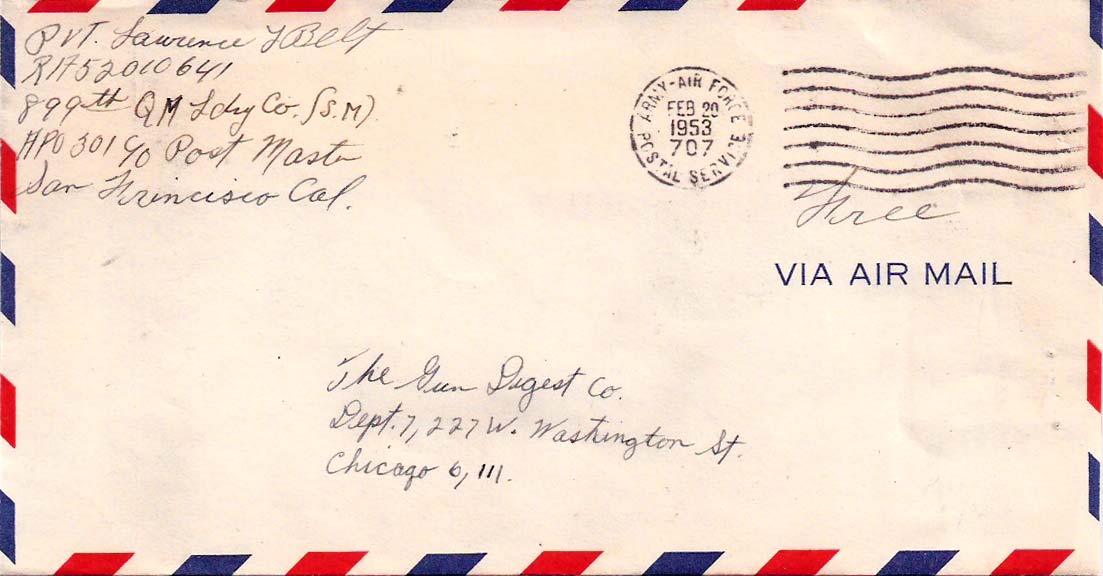 PVT. Lawrence L Belt
RA52010641
899th QM Ldry Co. (S.M)
APO 301 c/o Post Mastr
San Frincisco Cal.
ARMY-AIR FORCE
FEB 20
1953
707
POSTAL SERVICE
Free
VIA AIR MAIL
The Gun Digest Co.
Dept. 7, 227 W. Washington St.
Chicago 6, Ill.